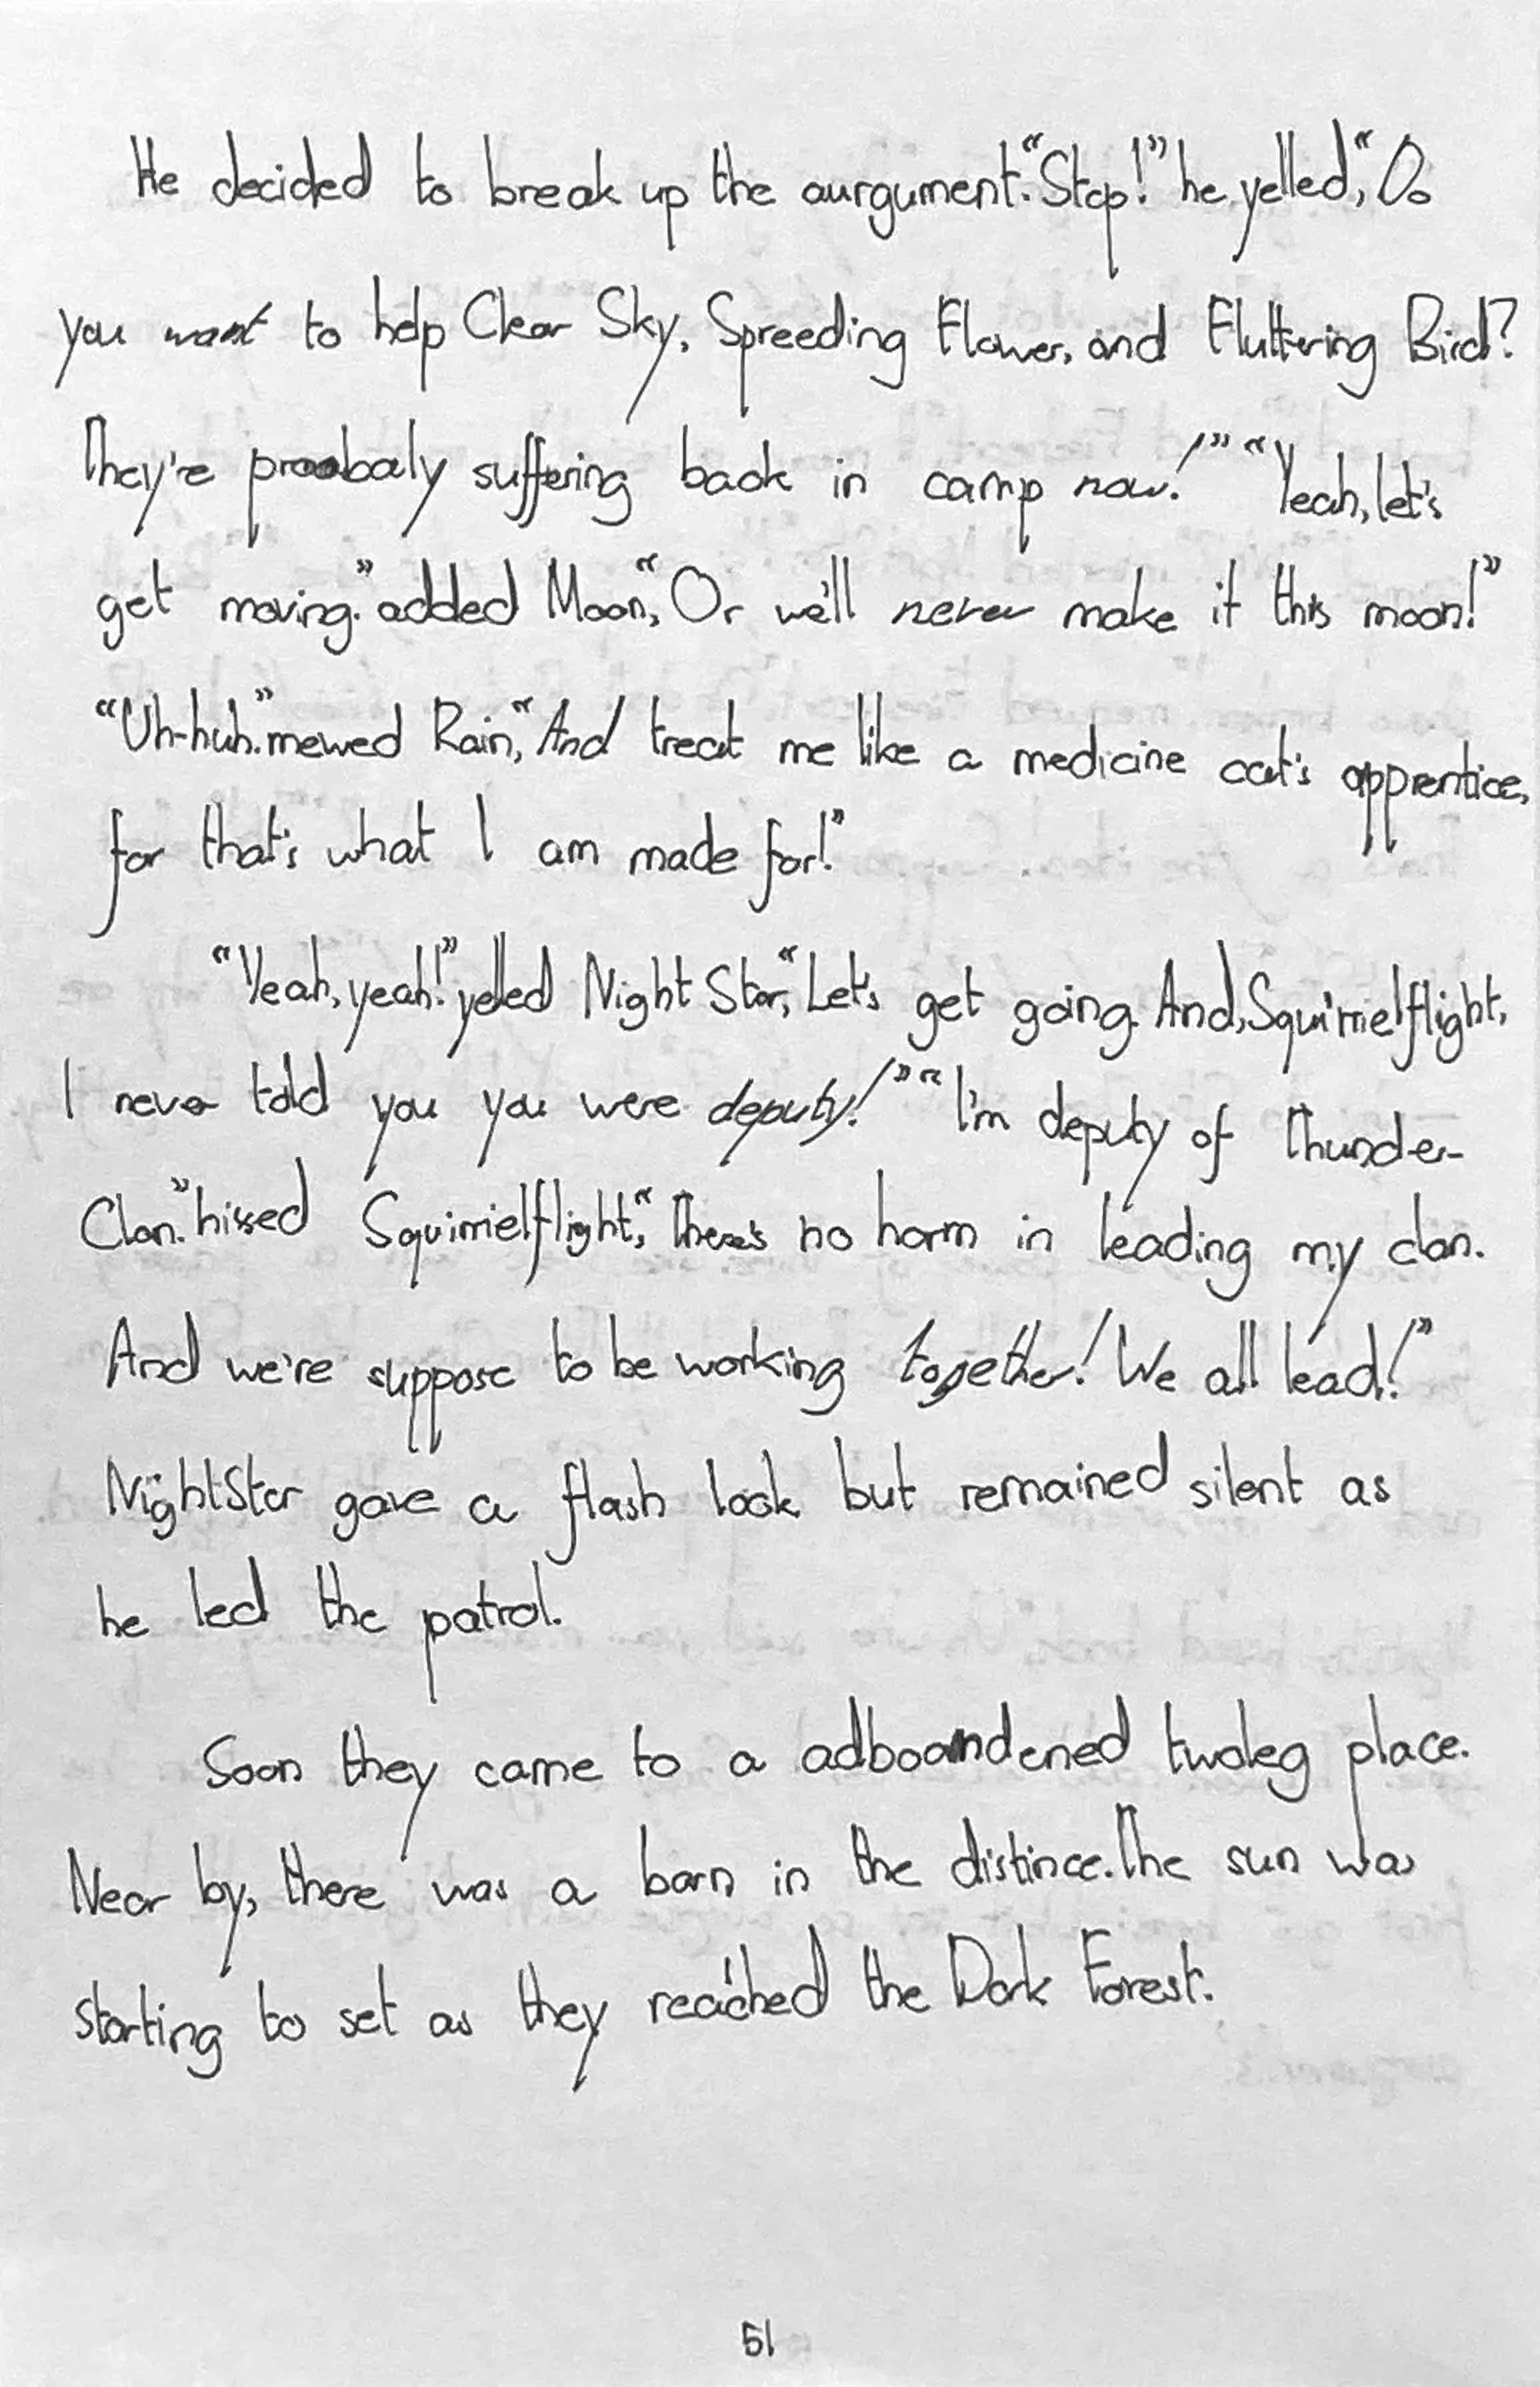 He decided to break up the aurgument. “Stop!” he yelled, “Do
you want to help Clear Sky, Spreeding Flower, and Fluttering Bird?
They're probaly suffering back in camp now!” “Yeah, let's
get moving.” added Moon, “Or we'll never make it this moon!”
“Uh-huh.” mewed Rain, “And treat me like a medicine cat's apprentice,
for that's what I am made for!”
“Yeah, yeah!” yelled Night Star, “Let's get going. And, Squirrielflight,
I never told you you were deputy!” “I'm deputy of Thunder-
Clan.” hissed Squirrielflight, “There's no harm in leading my clan.
And we're suppose to be working together! We all lead!”
Night Star gave a flash look but remained silent as
he led the patrol.
Soon they came to a adboandened twoleg place.
Near by, there was a barn in the distince. The sun was
starting to set as they reached the Dark Forest.
51